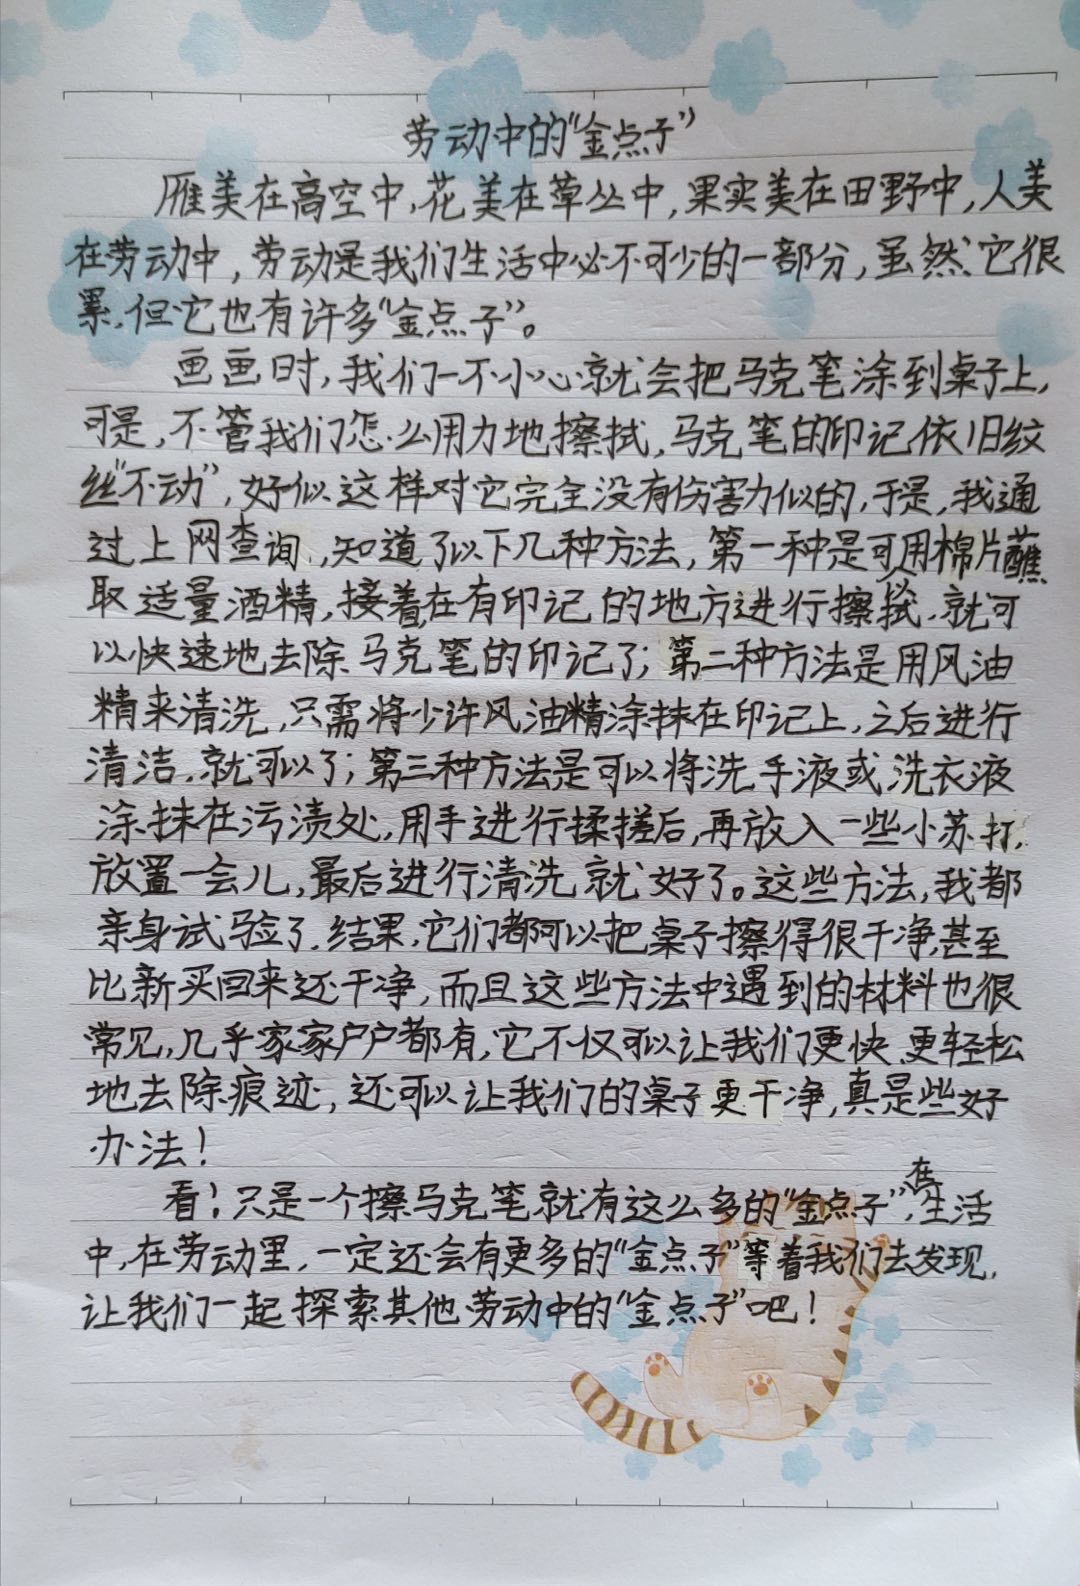 劳动中的“金点子”
雁美在高空中,花美在草丛中,果实美在田野中,人美
在劳动中,劳动是我们生活中必不可少的一部分,虽然它很
累,但它也有许多“金点子”。
画画时,我们一不小心就会把马克笔涂到桌子上,
可是,不管我们怎么用力地擦拭,马克笔的印记依旧纹
丝“不动”,好似这样对它完全没有伤害力似的,于是,我通
过上网查询,知道了以下几种方法,第一种是可用棉片蘸
取适量酒精,接着在有印记的地方进行擦拭,就可
以快速地去除马克笔的印记了;第二种方法是用风油
精来清洗,只需将少许风油精涂抹在印记上,之后进行
清洁,就可以了;第三种方法是可以将洗手液或洗衣液
涂抹在污渍处,用手进行揉搓后,再放入一些小苏打,
放置一会儿,最后进行清洗就好了。这些方法,我都
亲身试验了,结果,它们都可以把桌子擦得很干净,甚至
比新买回来还干净,而且这些方法中遇到的材料也很
常见,几乎家家户户都有,它不仅可以让我们更快更轻松
地去除痕迹,还可以让我们的桌子更干净,真是些好
办法!
看!只是一个擦马克笔就有这么多的“金点子”,在生活
中,在劳动里,一定还会有更多的“金点子”等着我们去发现,
让我们一起探索其他劳动中的“金点子”吧!